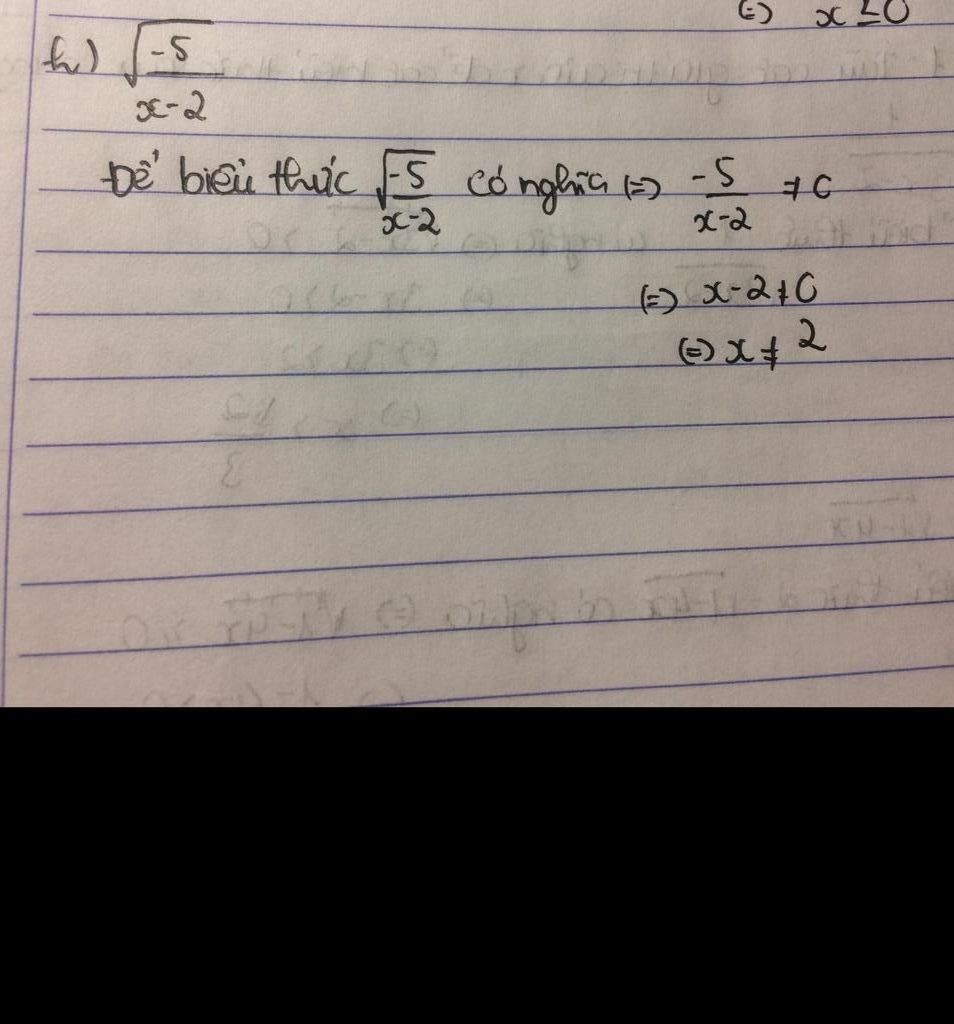 (=) x ≤ 0
h) √-5
x-2
Để biểu thức √-5/x-2 có nghĩa (=) -5/x-2 ≠ 0
(=) x-2 ≠ 0
(=) x ≠ 2